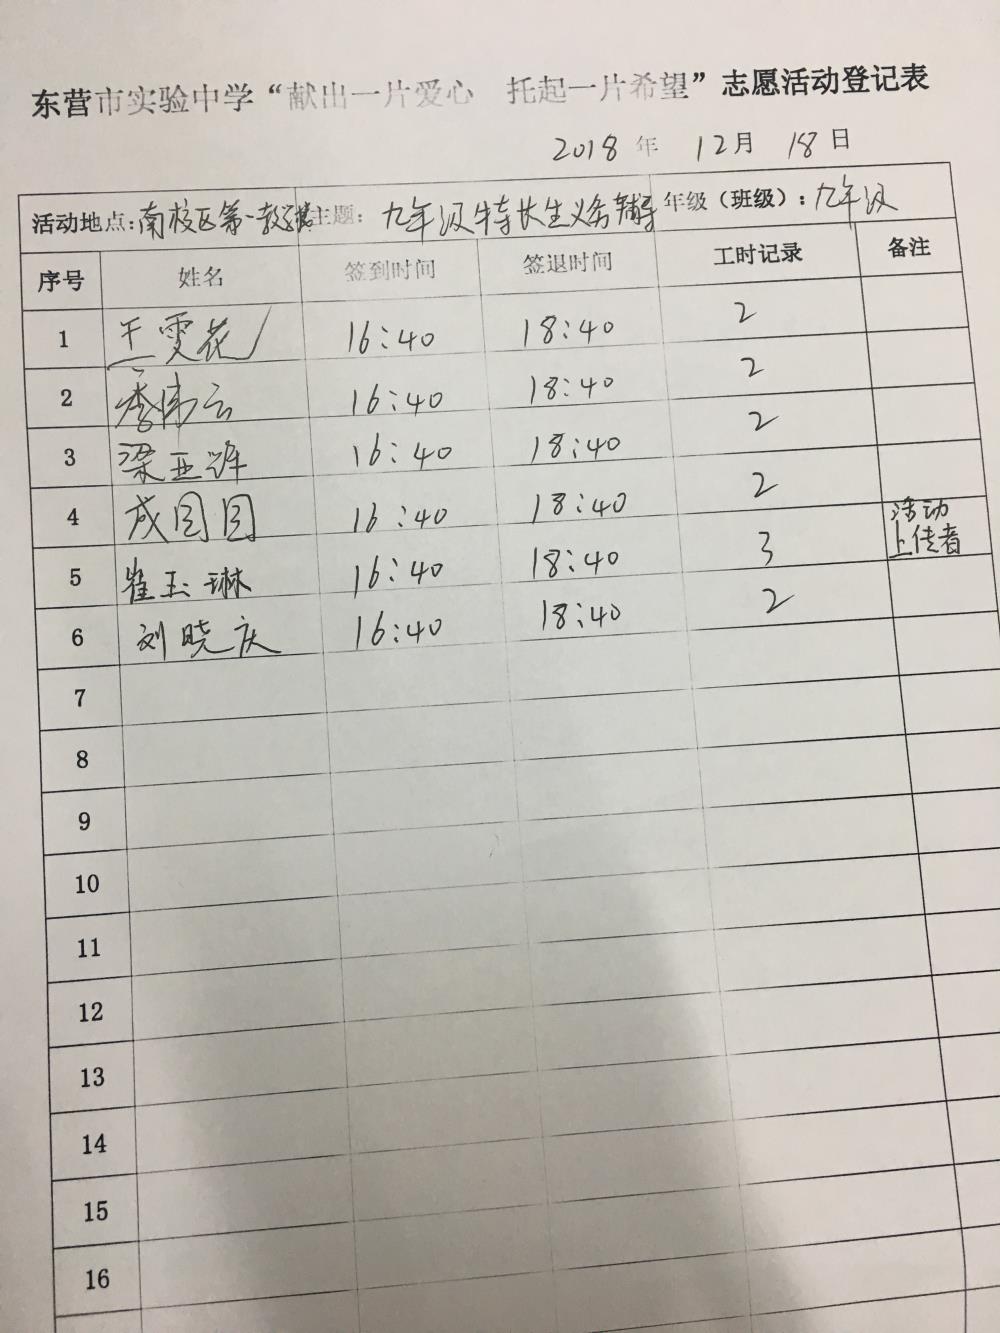 东营市实验中学“献出一片爱心 托起一片希望”志愿活动登记表
2018 年 12月 18日
活动地点:南校区第一教学楼 主题: 九年级特长生义务辅导 年级(班级):九年级
序号 姓名 签到时间 签退时间 工时记录 备注
1 王雯花 16:40 18:40 2
2 季伟云 16:40 18:40 2
3 梁亚 16:40 18:40 2
4 成园园 16:40 18:40 2
5 崔玉琳 16:40 18:40 3 活动上传者
6 刘晓庆 16:40 18:40 2
7
8
9
10
11
12
13
14
15
16